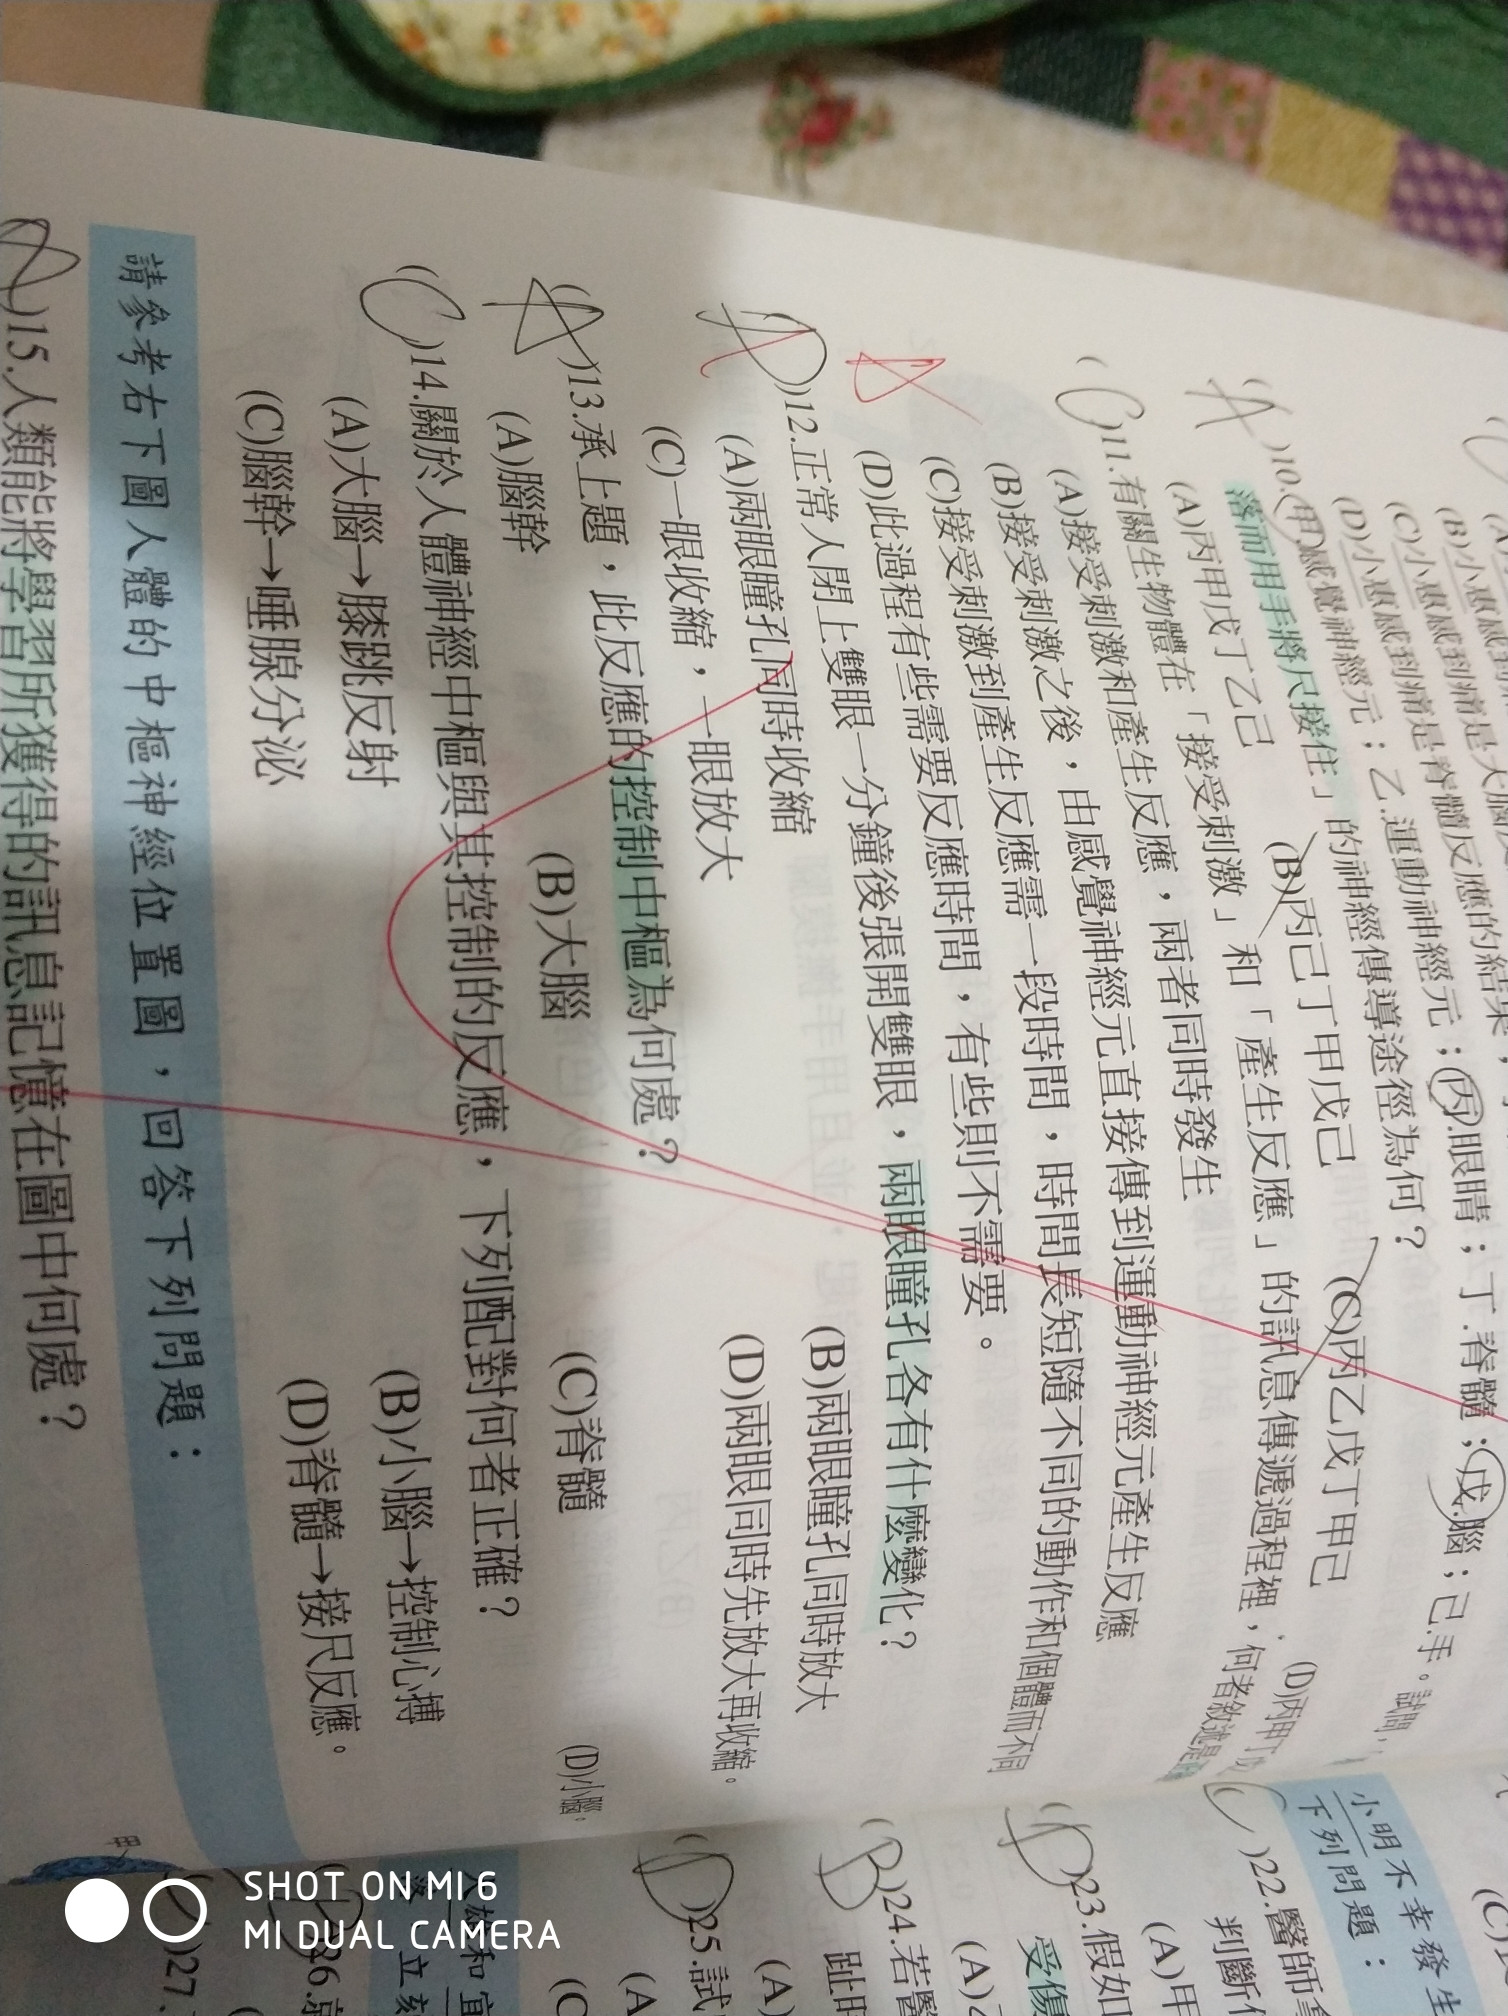 (B)小惠感到痛是大腦
(C)小惠感到痛是脊髓反應的結果
(D)小惠感到
(A)10.甲.感覺神經元；乙.運動神經元；丙.眼睛；丁.脊髓；戊.腦；己.手。試問，
落而用手將尺接住」的神經傳導途徑為何？
(A)丙甲戊丁乙己 (B)丙己丁甲戊己 (C)丙乙戊丁甲己
(C)11.有關生物體在「接受刺激」和「產生反應」的訊息傳遞過程裡，何者敘述是
(A)接受刺激和產生反應，兩者同時發生
(B)接受刺激之後，由感覺神經元直接傳到運動神經元產生反應
(C)接受刺激到產生反應需一段時間，時間長短隨不同的動作和個體而不同
(D)此過程有些需要反應時間，有些則不需要。
(D)12.正常人閉上雙眼一分鐘後張開雙眼，兩眼瞳孔各有什麼變化？
A
(A)兩眼瞳孔同時收縮 (B)兩眼瞳孔同時放大
(C)一眼收縮，一眼放大 (D)兩眼同時先放大再收縮。
(A)13.承上題，此反應的控制中樞為何處？
(A)腦幹 (B)大腦 (C)脊髓 (D)小腦。
(C)14.關於人體神經中樞與其控制的反應，下列配對何者正確？
(A)大腦→膝跳反射 (B)小腦→控制心搏
(C)腦幹→唾腺分泌 (D)脊髓→接尺反應。
請參考右下圖人體的中樞神經位置圖，回答下列問題：
)15.人類能將學習所獲得的訊息記憶在圖中何處？
小明不幸發生
下列問題：
)22.醫師
判斷
(A)甲
(D)23.假如
受傷
(A)
(B)24.若醫
趾
(A)
(D)25.試
(A
和宜
立刻
26.
(C
)27.
甲
SHOT ON MI 6
MI DUAL CAMERA